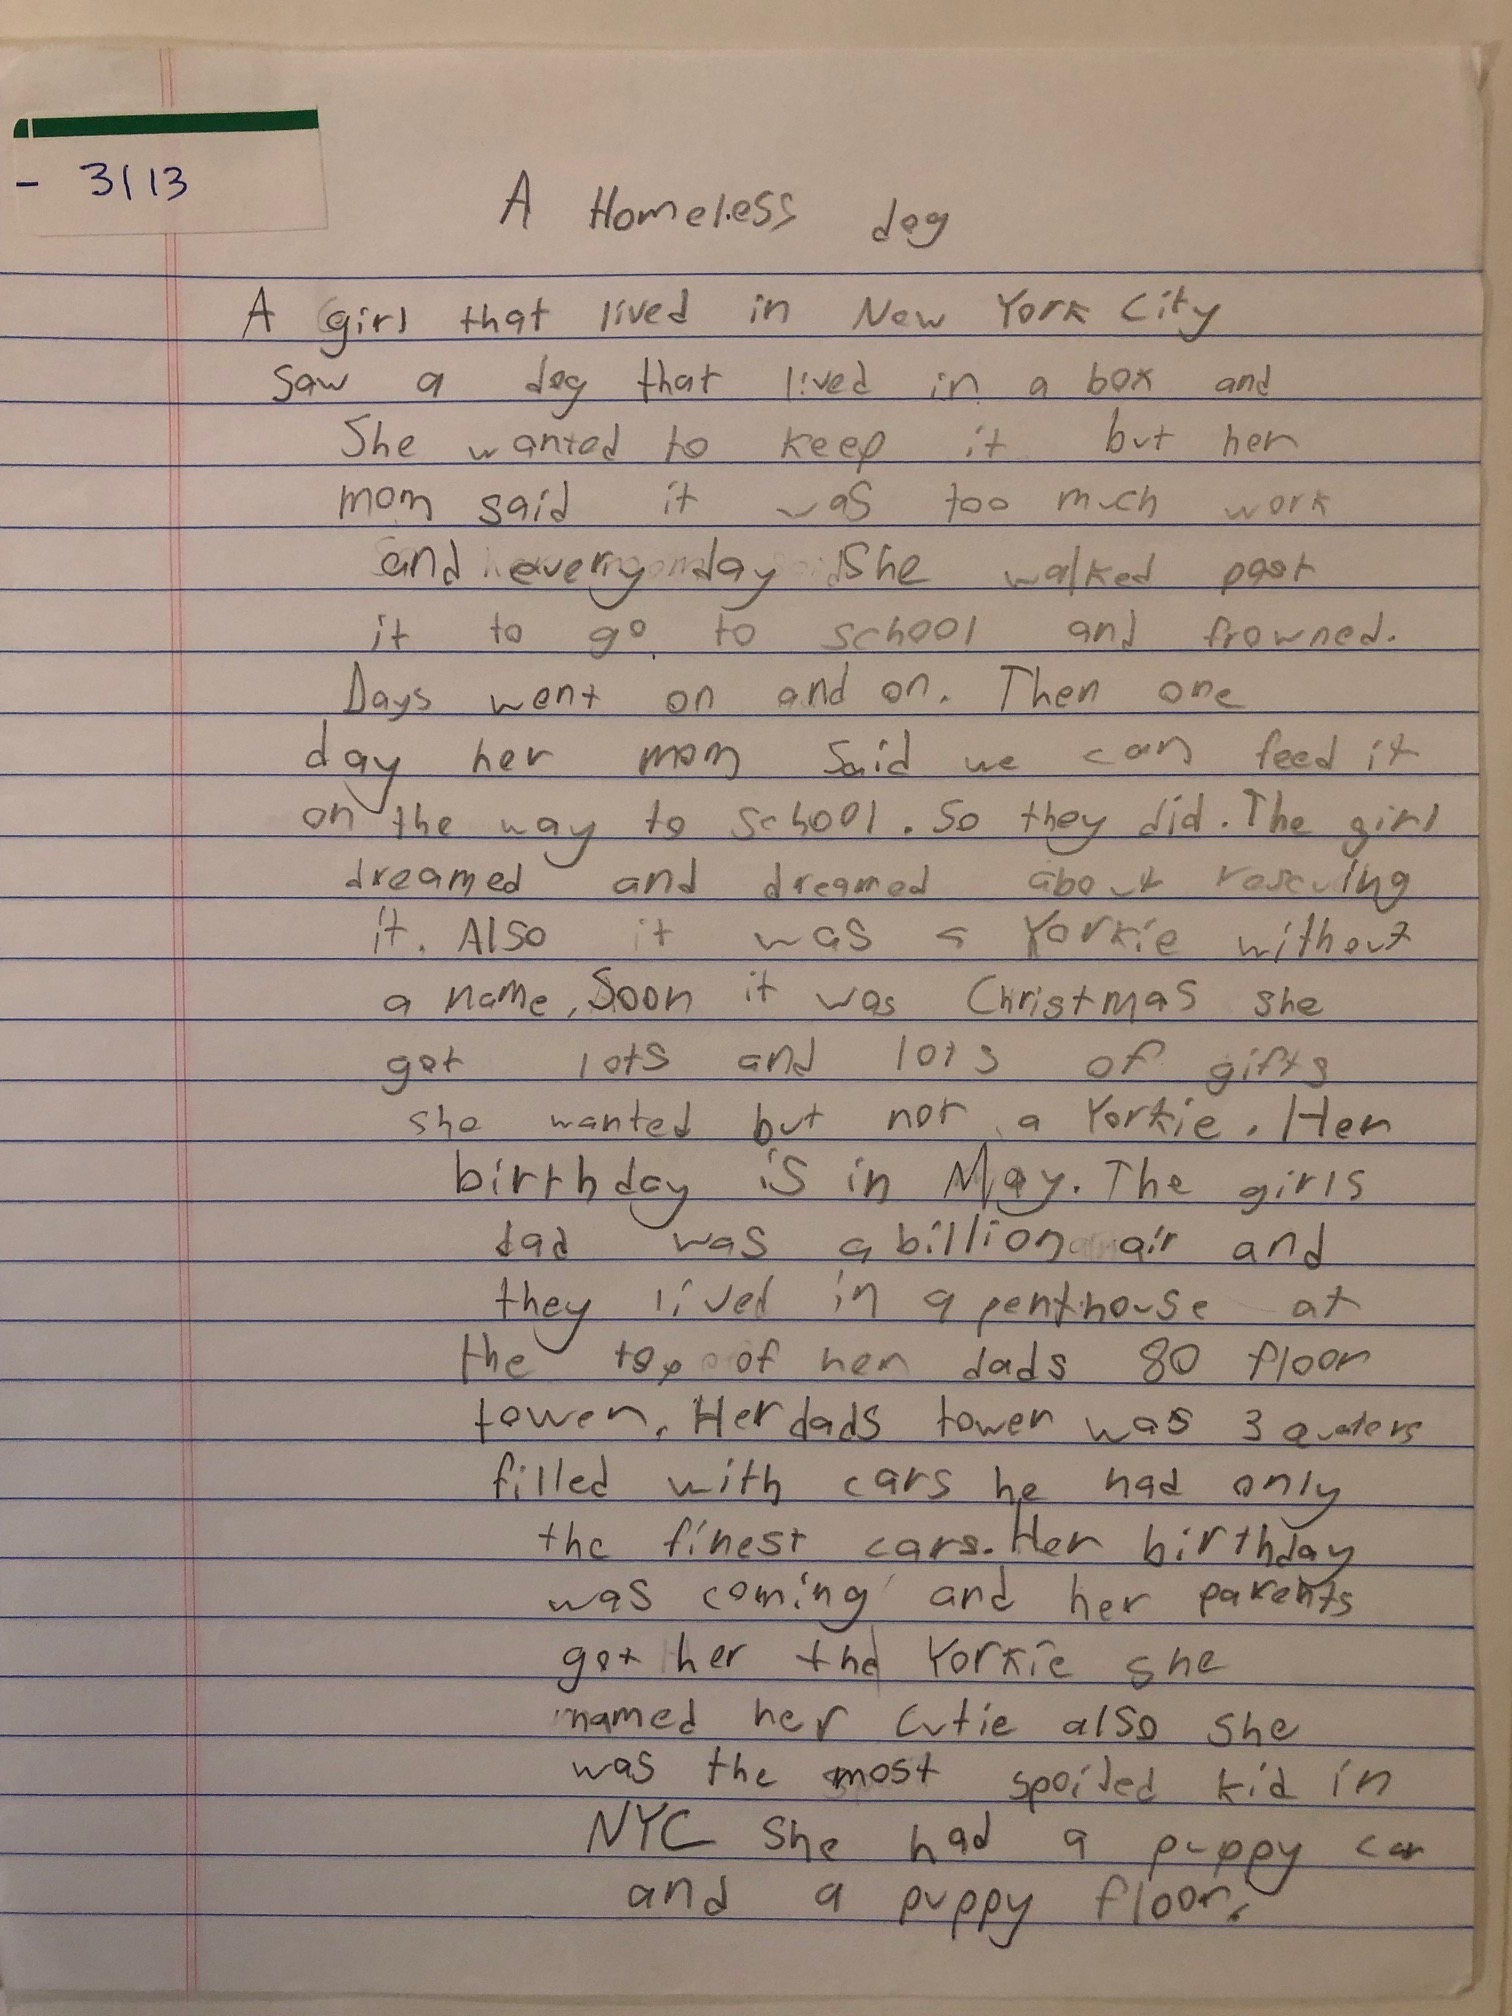 - 3113
A Homeless dog
A girl that lived in New York City
saw a dog that lived in a box and
She wanted to keep it but her
mom said it was too much work
and every day She walked past
it to go to school and frowned.
Days went on and on. Then one
day her mom said we can feed it
on the way to school. So they did. The girl
dreamed and dreamed about rescuing
it. Also it was a Yorkie without
a name, Soon it was Christmas she
got lots and lots of gifts
she wanted but not a Yorkie. Her
birthday is in May. The girls
dad was a billion air and
they lived in a penthouse at
the top of her dads 80 floor
tower. Her dads tower was 3 quaters
filled with cars he had only
the finest cars. Her birthday
was coming and her parents
got her the Yorkie she
named her Cutie also she
was the most spoiled kid in
NYC She had a puppy car
and a puppy floor.